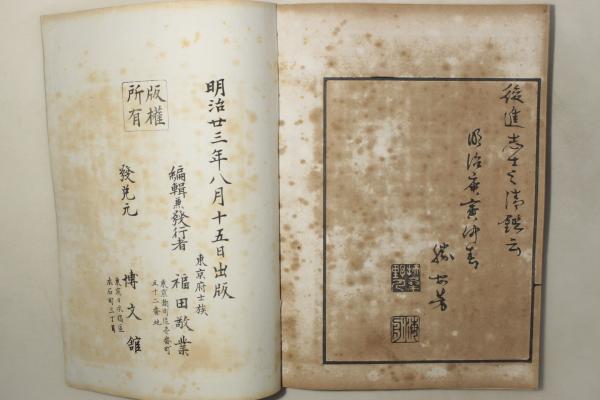 後進志士之清鑑云
明治庚寅仲春
勝安芳
版權
所有
明治廿三年八月十五日出版
東京府士族
編輯兼發行者 福田敬業
東京麹町区壱番町
五十二番地
發兌元 博文舘
東京日本橋區
本石町三丁目